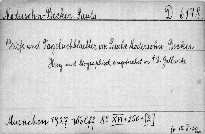 Modersohn-Becker, Paula D 8179
Briefe und Tagebuchblätter von Paula Modersohn-Becker.
Hrsg. und biographisch eingeleitet von S. D. Gallwitz.
Muenchen 1927 Wolff. 8° [XVI + 250 + [2]]